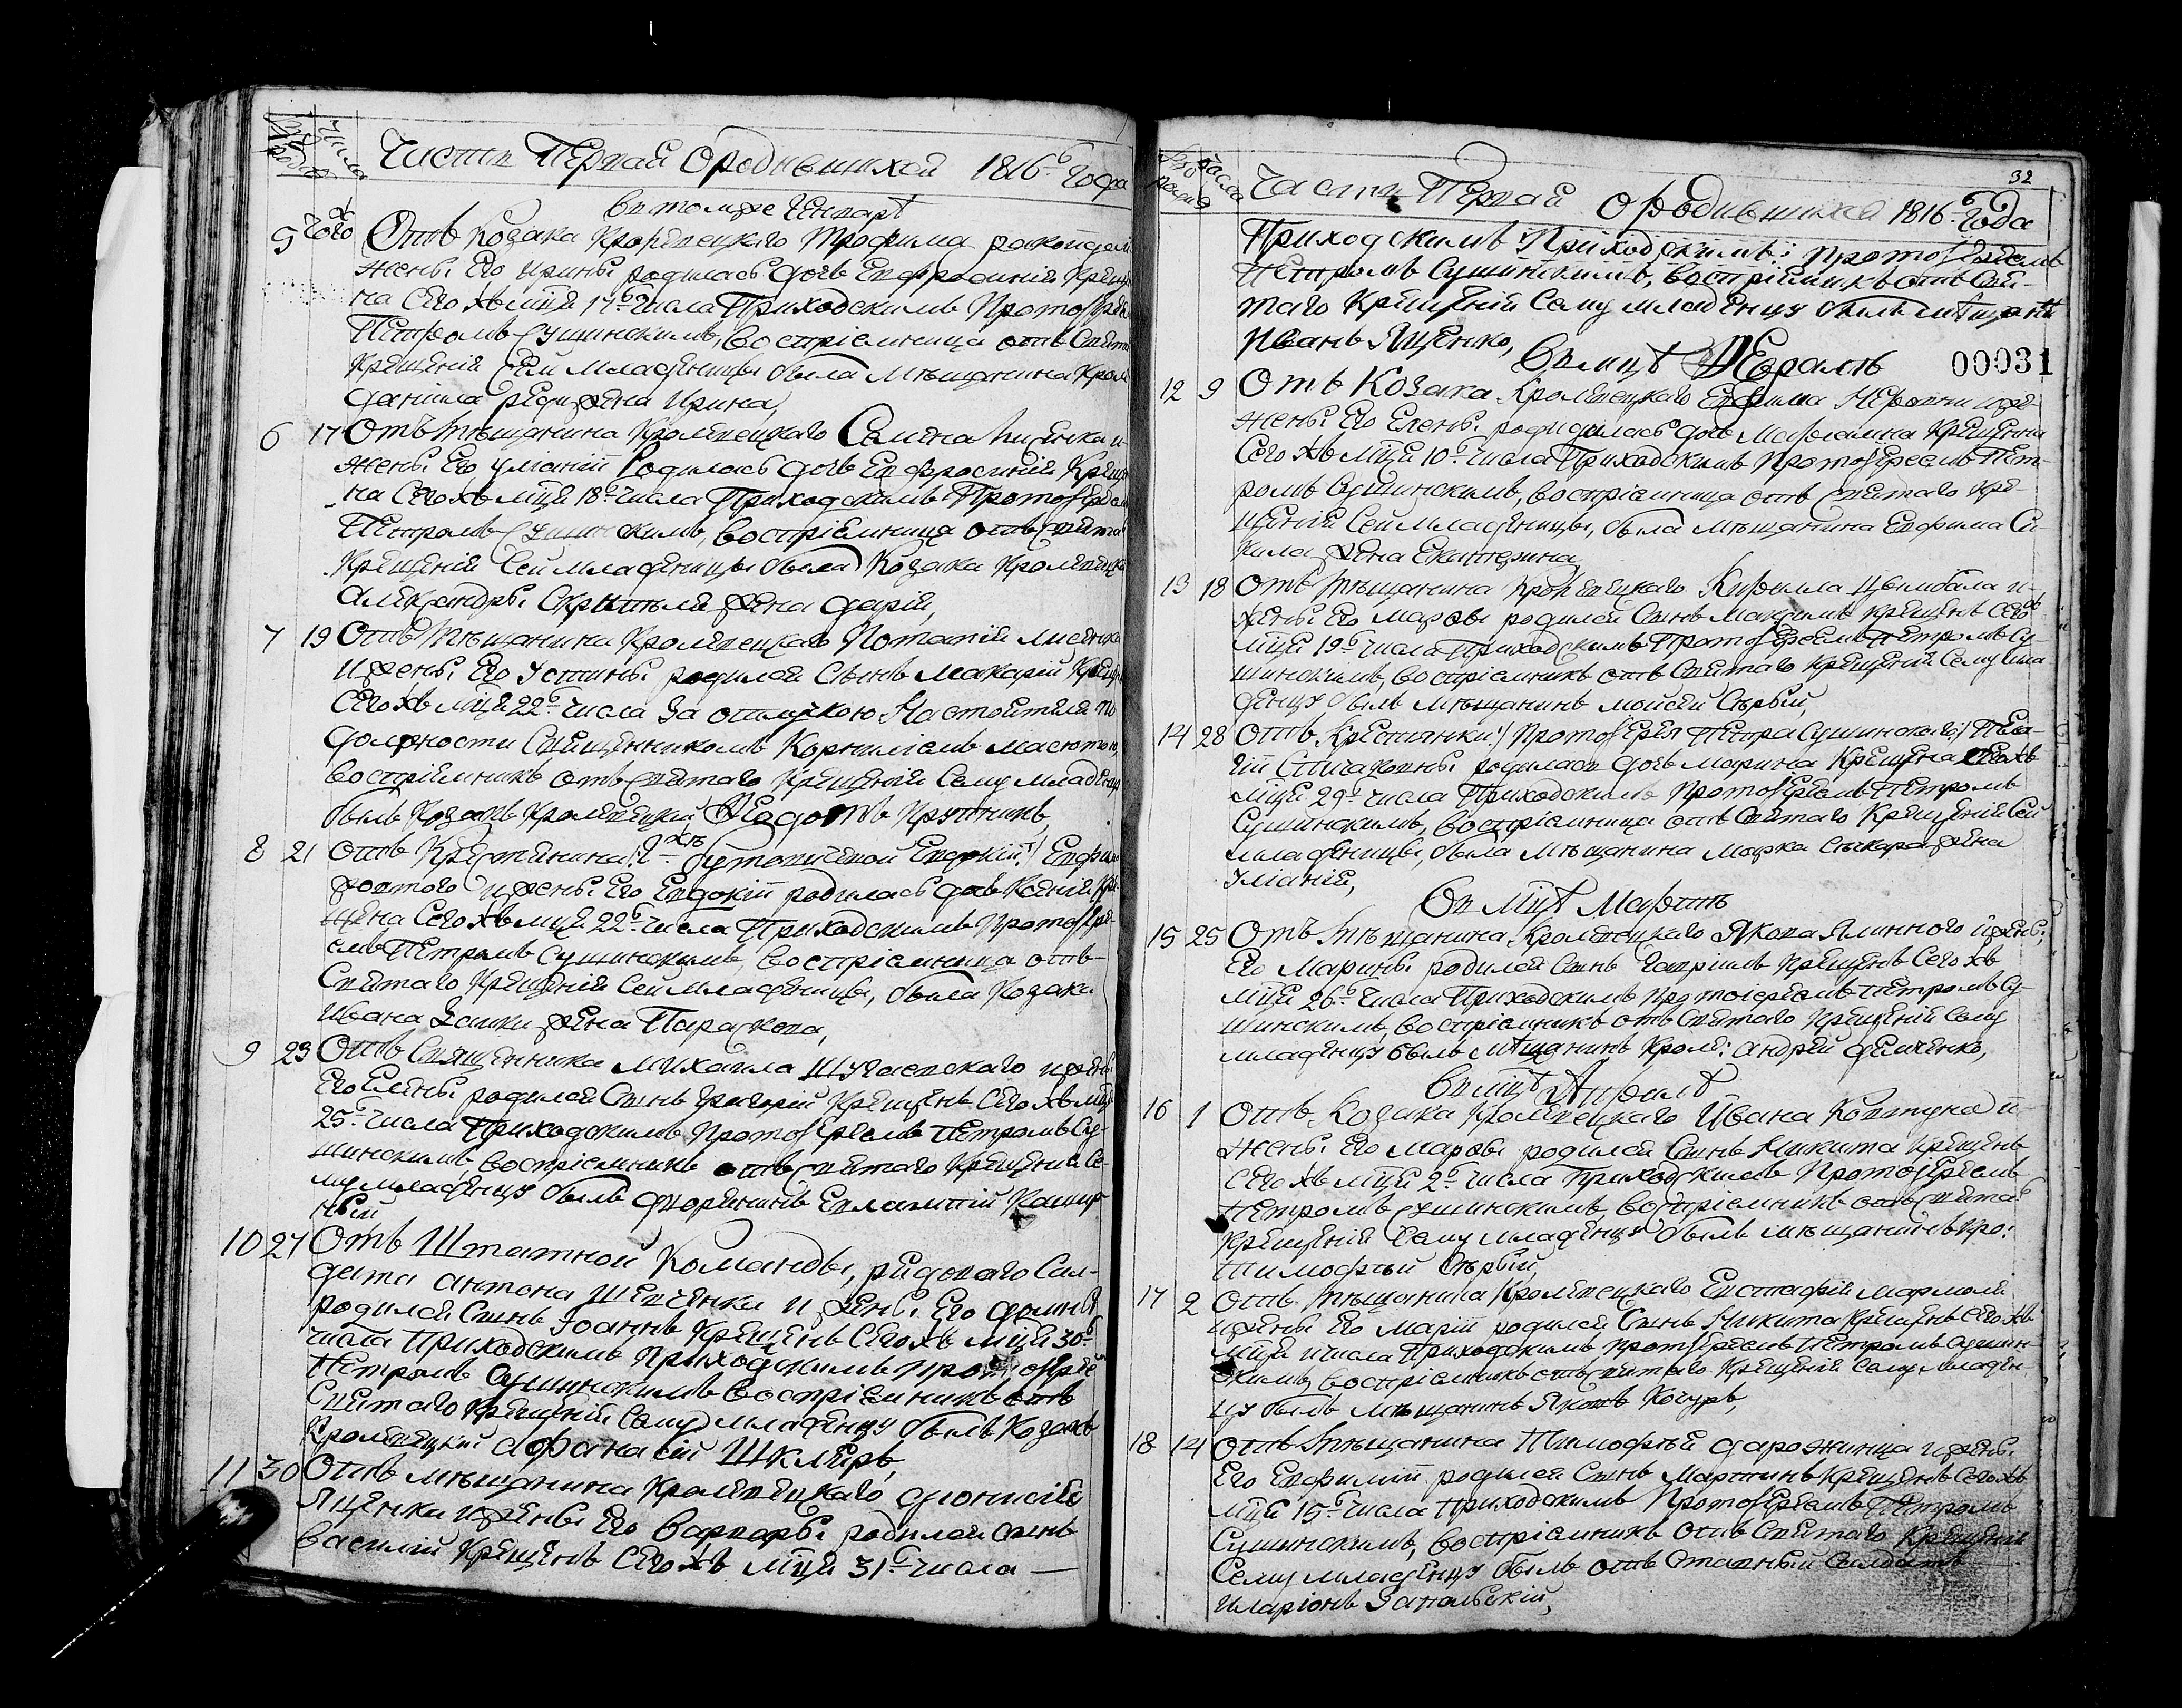 Число родив.
Числа
Часть Первая о родившихся 1816 6 Года
Въ месяце Генварѣ
5 того Отъ Козака Кролевецкого Трофима
жены Его Ирины родилась дочь Евфросинія Креще
на Сего жъ мца 17 6 числа Приходскимъ Протоіере
Петромъ Сушинскимъ, воспріемница отъ Свята
Крещенія Сей Младеницы была Мѣщанина Крол
Даніила жена Ирина,
6 17 Отъ Мѣщанина Кролевецкаго Семена Ященка и
жены Его Уліаніи Родилась дочь Евфросинія Креще
на Сего жъ мца 18 6 числа Приходскимъ Протоіерем
Петромъ Сушинскимъ, воспріемница отъ Свята
Крещенія Сей младеницы была Козака Кролевецка
Александры жена Дарія,
7 19 Отъ Мѣщанина Кролевецкаго Потапія Лисенка
и жены Его Устины родился Сынъ Макарій Креще
Сего жъ мца 22 6 числа За отлучкою Настоятеля по
должности Священникомъ Корниліемъ
воспріемникъ отъ Святаго Крещенія Сему младенцу
былъ Козакъ Кролевецкій Федотъ
8 21 Отъ Крестянина Бутовичевой Евдокіи Евфим
и жены Его Евдокіи родилась дочь Ксенія Кре
щена Сего жъ мца 22 6 числа Приходскимъ Протоіере
емъ Петромъ Сушинскимъ, воспріемница отъ
Святаго Крещенія Сей младеницы, была Козака
Ивана Заики жена Параскева,
9 23 Отъ Священника Михаила и жены
Его Елены родился Сынъ Григорій Крещенъ Сего жъ мца
25 6 числа Приходскимъ Протоіереемъ Петромъ Су-
шинскимъ, воспріемникъ отъ Святаго Крещенія Се-
му младенцу былъ Дворянинъ Евлампій
10 27 Отъ Штатной Команды, рядоваго Сал-
дата Антона Шевченка и жены Его
родился Сынъ Іоаннъ Крещенъ Сего жъ мца 30 6
числа Приходскимъ Приходскимъ Протоіерее
Петромъ Сушинскимъ воспріемникъ отъ
Святаго Крещенія Сему младенцу былъ Козакъ
Кролевецкій Афанасій Шкляръ,
11 30 Отъ мѣщанина Кролевецкаго Діонисія
Яценки и жены Его Варвары родился Сынъ
Василій Крещенъ Сего жъ мца 31 6 числа —
32
Число родив
Числа
Часть Первая о родившихся 1816 6 Года
Приходскимъ Приходскимъ Протоіереемъ
Петромъ Сушинскимъ, воспріемникъ отъ Свя-
таго Крещенія Сему младенцу былъ мѣщанинъ
Иванъ Яценко,
Въ мцѣ Февралѣ
00031
12 9 Отъ Козака Кролевецкаго Евфима и
жены Его Елены родилась дочь Маріамна Крещенна
Сего жъ мца 10 6 числа Приходскимъ Протоіереемъ Пет-
ромъ Сушинскимъ, воспріемница отъ Святаго Кре-
щенія Сей младеницы, была мѣщанина Евфима
жена Екатерина,
13 18 Отъ Мѣщанина Кролевецкаго Кирилла Цымбала и
жены Его Марфы родился Сынъ Максимъ Крещенъ Сего жъ
мца 19 6 числа Приходскимъ Протоіереемъ Петромъ Су-
шинскимъ, воспріемникъ отъ Святаго Крещенія Сему мла
денцу былъ мѣщанинъ Мойсей Сѣрый,
14 28 Отъ Крестянки Протоіерея Петра Сушинскаго Пела
гіи родилась дочь Марина Крещена Сего жъ
мца 29 6 числа Приходскимъ Протоіереемъ Петромъ
Сушинскимъ, воспріемница отъ Святаго Крещенія Сей
младеницы, была мѣщанина Марка жена
Уліанія,
Въ мцѣ Мартѣ
15 25 Отъ Мѣщанина Кролевецкаго Якова и жены
Его Марины родился Сынъ Гавріилъ Крещенъ Сего жъ
мца 26 6 числа Приходскимъ Протоіереемъ Петромъ Су-
шинскимъ, воспріемникъ отъ Святаго Крещенія Сему
младенцу былъ мѣщанинъ Крол: Андрей Демченко,
Въ мцѣ Апрелѣ
16 1 Отъ Козака Кролевецкаго Ивана Ковтуна и
жены Его Марфы родился Сынъ Никита Крещенъ
Сего жъ мца 2 6 числа Приходскимъ Протоіереемъ
Петромъ Сушинскимъ, воспріемникъ отъ Святаго
Крещенія Сему младенцу былъ мѣщанинъ Кро:
Тимофѣй Сѣрый,
17 2 Отъ Мѣщанина Кролевецкаго Евстафія
и жены Его Маріи родился Сынъ Никита Крещенъ Сего жъ
мца числа Приходскимъ Протоіереемъ Петромъ Сушин-
скимъ, воспріемникъ отъ Святаго Крещенія Сему младен-
цу былъ мѣщанинъ Яковъ Коцуръ,
18 14 Отъ Мѣщанина Тимофѣя и жены
Его Евфиміи родился Сынъ Мартинъ Крещенъ Сего жъ
мца 15 6 числа Приходскимъ Протоіереемъ Петромъ
Сушинскимъ, воспріемникъ отъ Святаго Крещенія
Сему младенцу былъ отъ Ставный Салдатъ
Иларіонъ Запольскій,